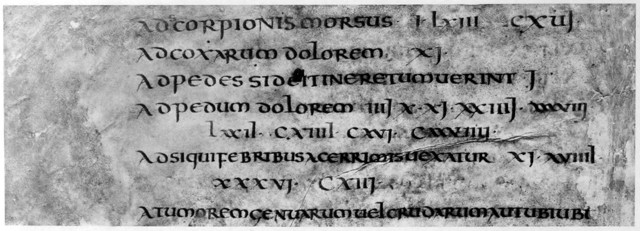 ADCORPIONISMORSUS · I · LXIII · CXUI
ADCOXARUM DOLOREM · XI ·
ADPEDES SIDEITINERETUMUERINT I
ADPEDUM DOLOREM IIII X · XI · XXIIII
LXII · CXIIII · CXVI ·
ADSIQUIFEBRIBUSACERRIMISUEXATUR XI · XVIIII
XXXVI · CXIII
ATUMOREMGENUARUMUELCRUDARUMAUTUBIUBI